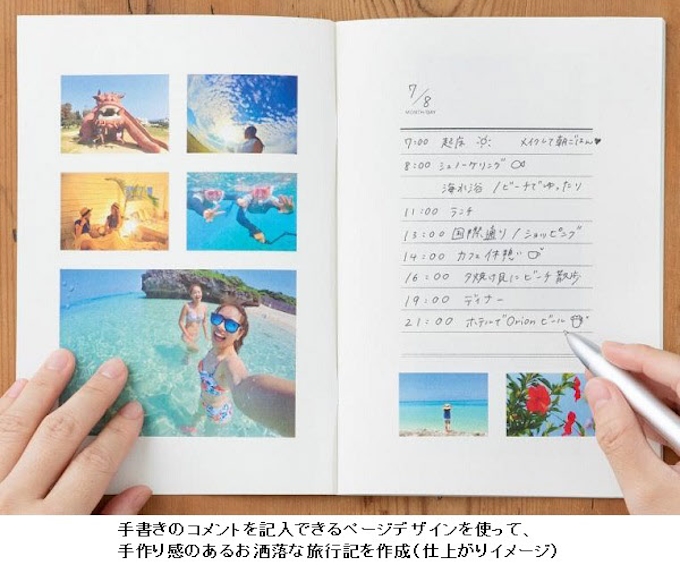 7/8
MONTH/DAY
7:00 起床 メイクして朝ごはん♥
8:00 シュノーケリング
海水浴 / ビーチでゆったり
11:00 ランチ
13:00 国際通り / ショッピング
14:00 カフェ休憩
16:00 夕焼け見にビーチ散歩
19:00 ディナー
21:00 ホテルでOrionビール
手書きのコメントを記入できるページデザインを使って、
手作り感のあるお洒落な旅行記を作成(仕上がりイメージ)